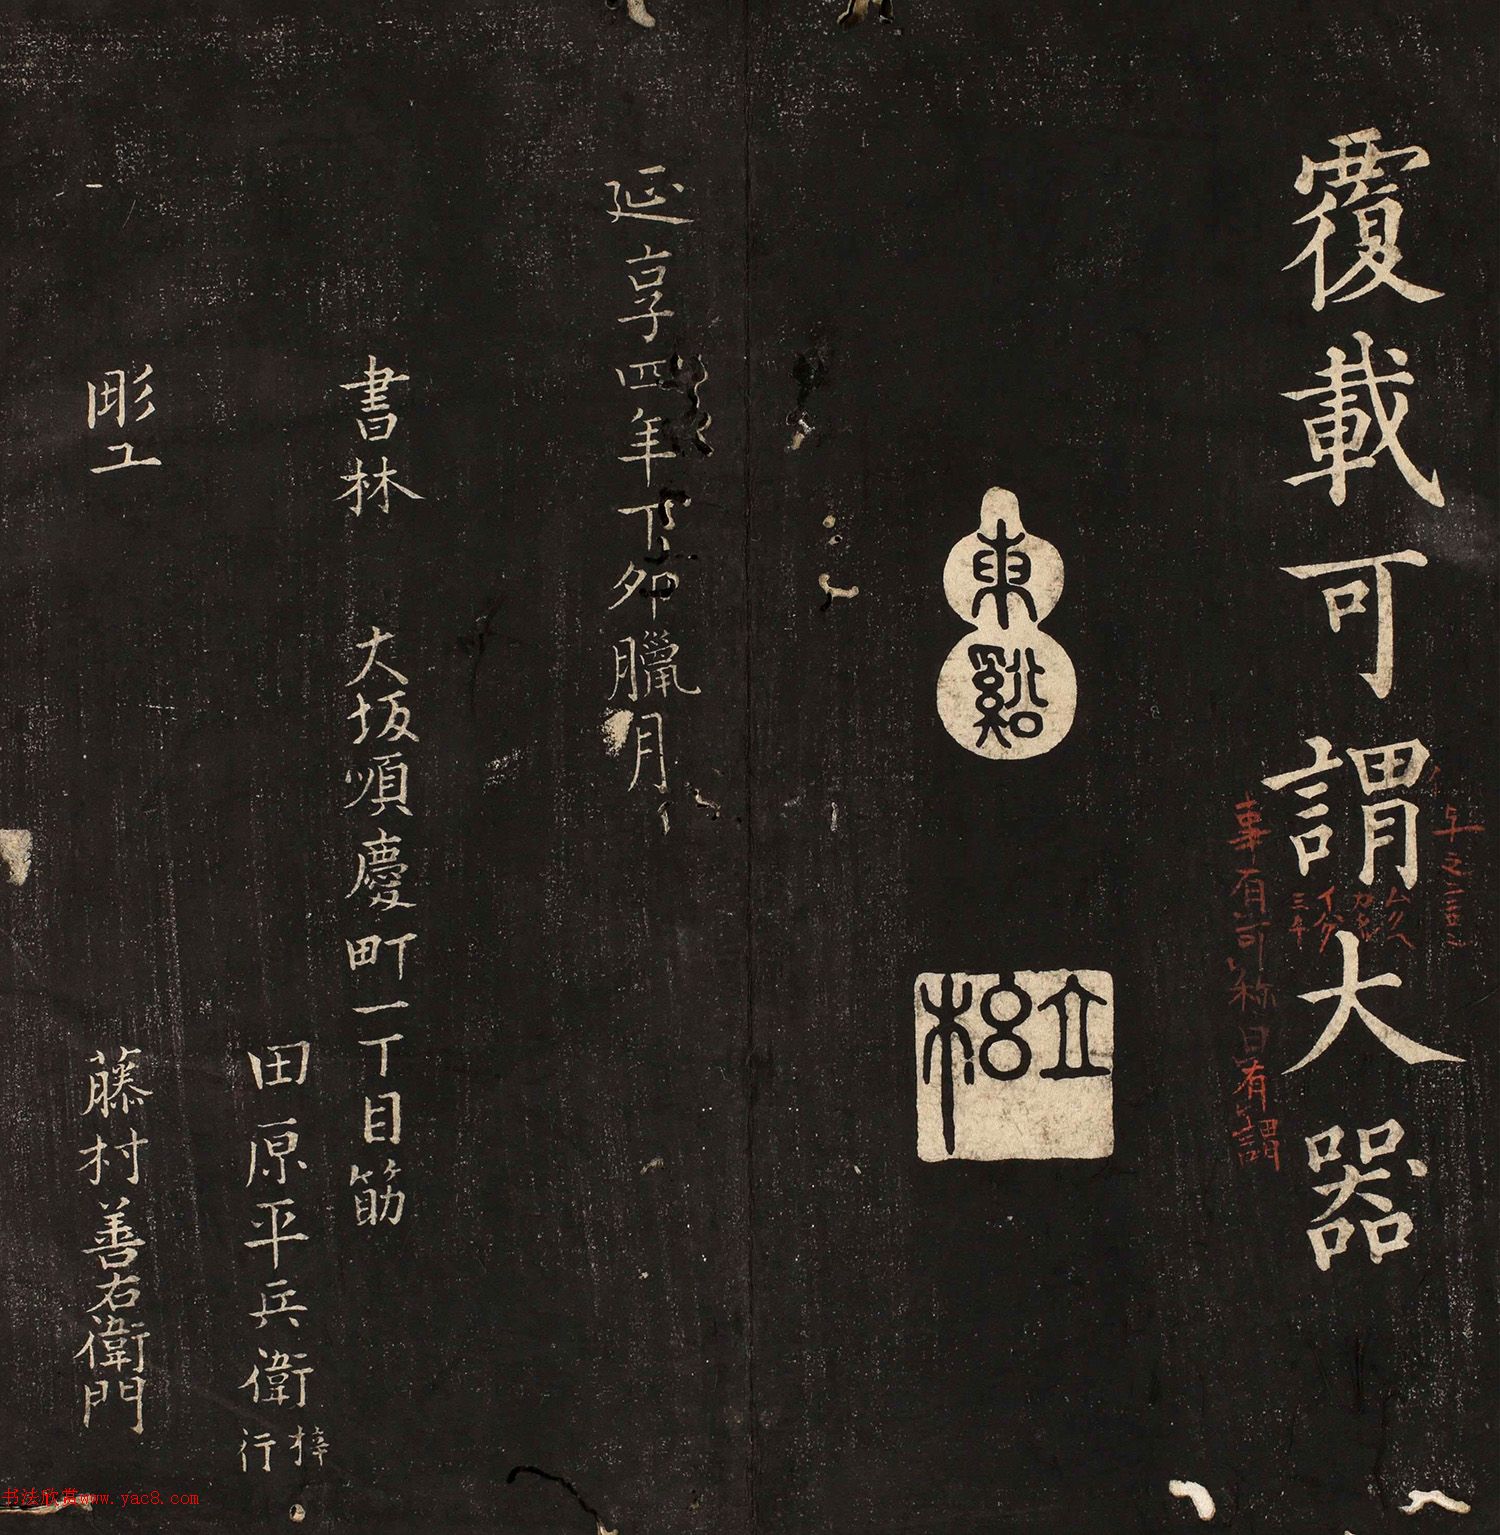 覆載可謂大器
事有可称曰有謂
東谿
立松
延享四年丁卯臘月
書林 大坂順慶町一丁目筋
田原平兵衛 梓行
彫工 藤村善右衛門
书法欣赏www.yac8.com